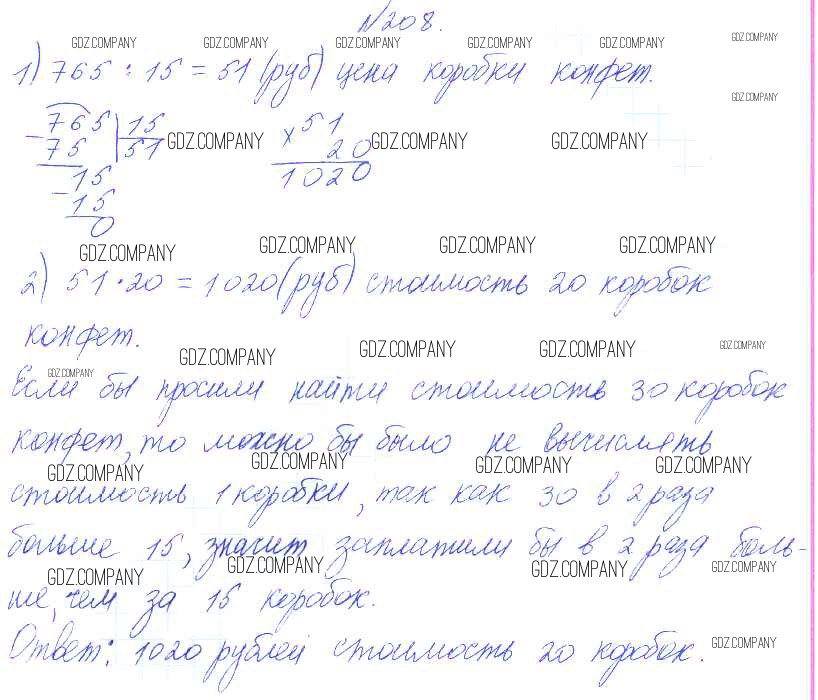 №208.
GDZ.COMPANY GDZ.COMPANY GDZ.COMPANY GDZ.COMPANY GDZ.COMPANY GDZ.COMPANY
1) 765 : 15 = 51 (руб) цена коробки конфет.
GDZ.COMPANY
765 | 15 × 51
- 75 51 GDZ.COMPANY 20 GDZ.COMPANY GDZ.COMPANY
- 15 1020
15
0
GDZ.COMPANY GDZ.COMPANY GDZ.COMPANY GDZ.COMPANY
2) 51 · 20 = 1020 (руб) стоимость 20 коробок
конфет.
GDZ.COMPANY GDZ.COMPANY GDZ.COMPANY GDZ.COMPANY
GDZ.COMPANY
Если бы просили найти стоимость 30 коробок
конфет, то можно бы было не вычислять
GDZ.COMPANY GDZ.COMPANY GDZ.COMPANY GDZ.COMPANY
стоимость 1 коробки, так как 30 в 2 раза
больше 15, значит заплатили бы в 2 раза боль-
GDZ.COMPANY GDZ.COMPANY GDZ.COMPANY GDZ.COMPANY
ше, чем за 15 коробок.
Ответ: 1020 рублей стоимость 20 коробок.
GDZ.COMPANY